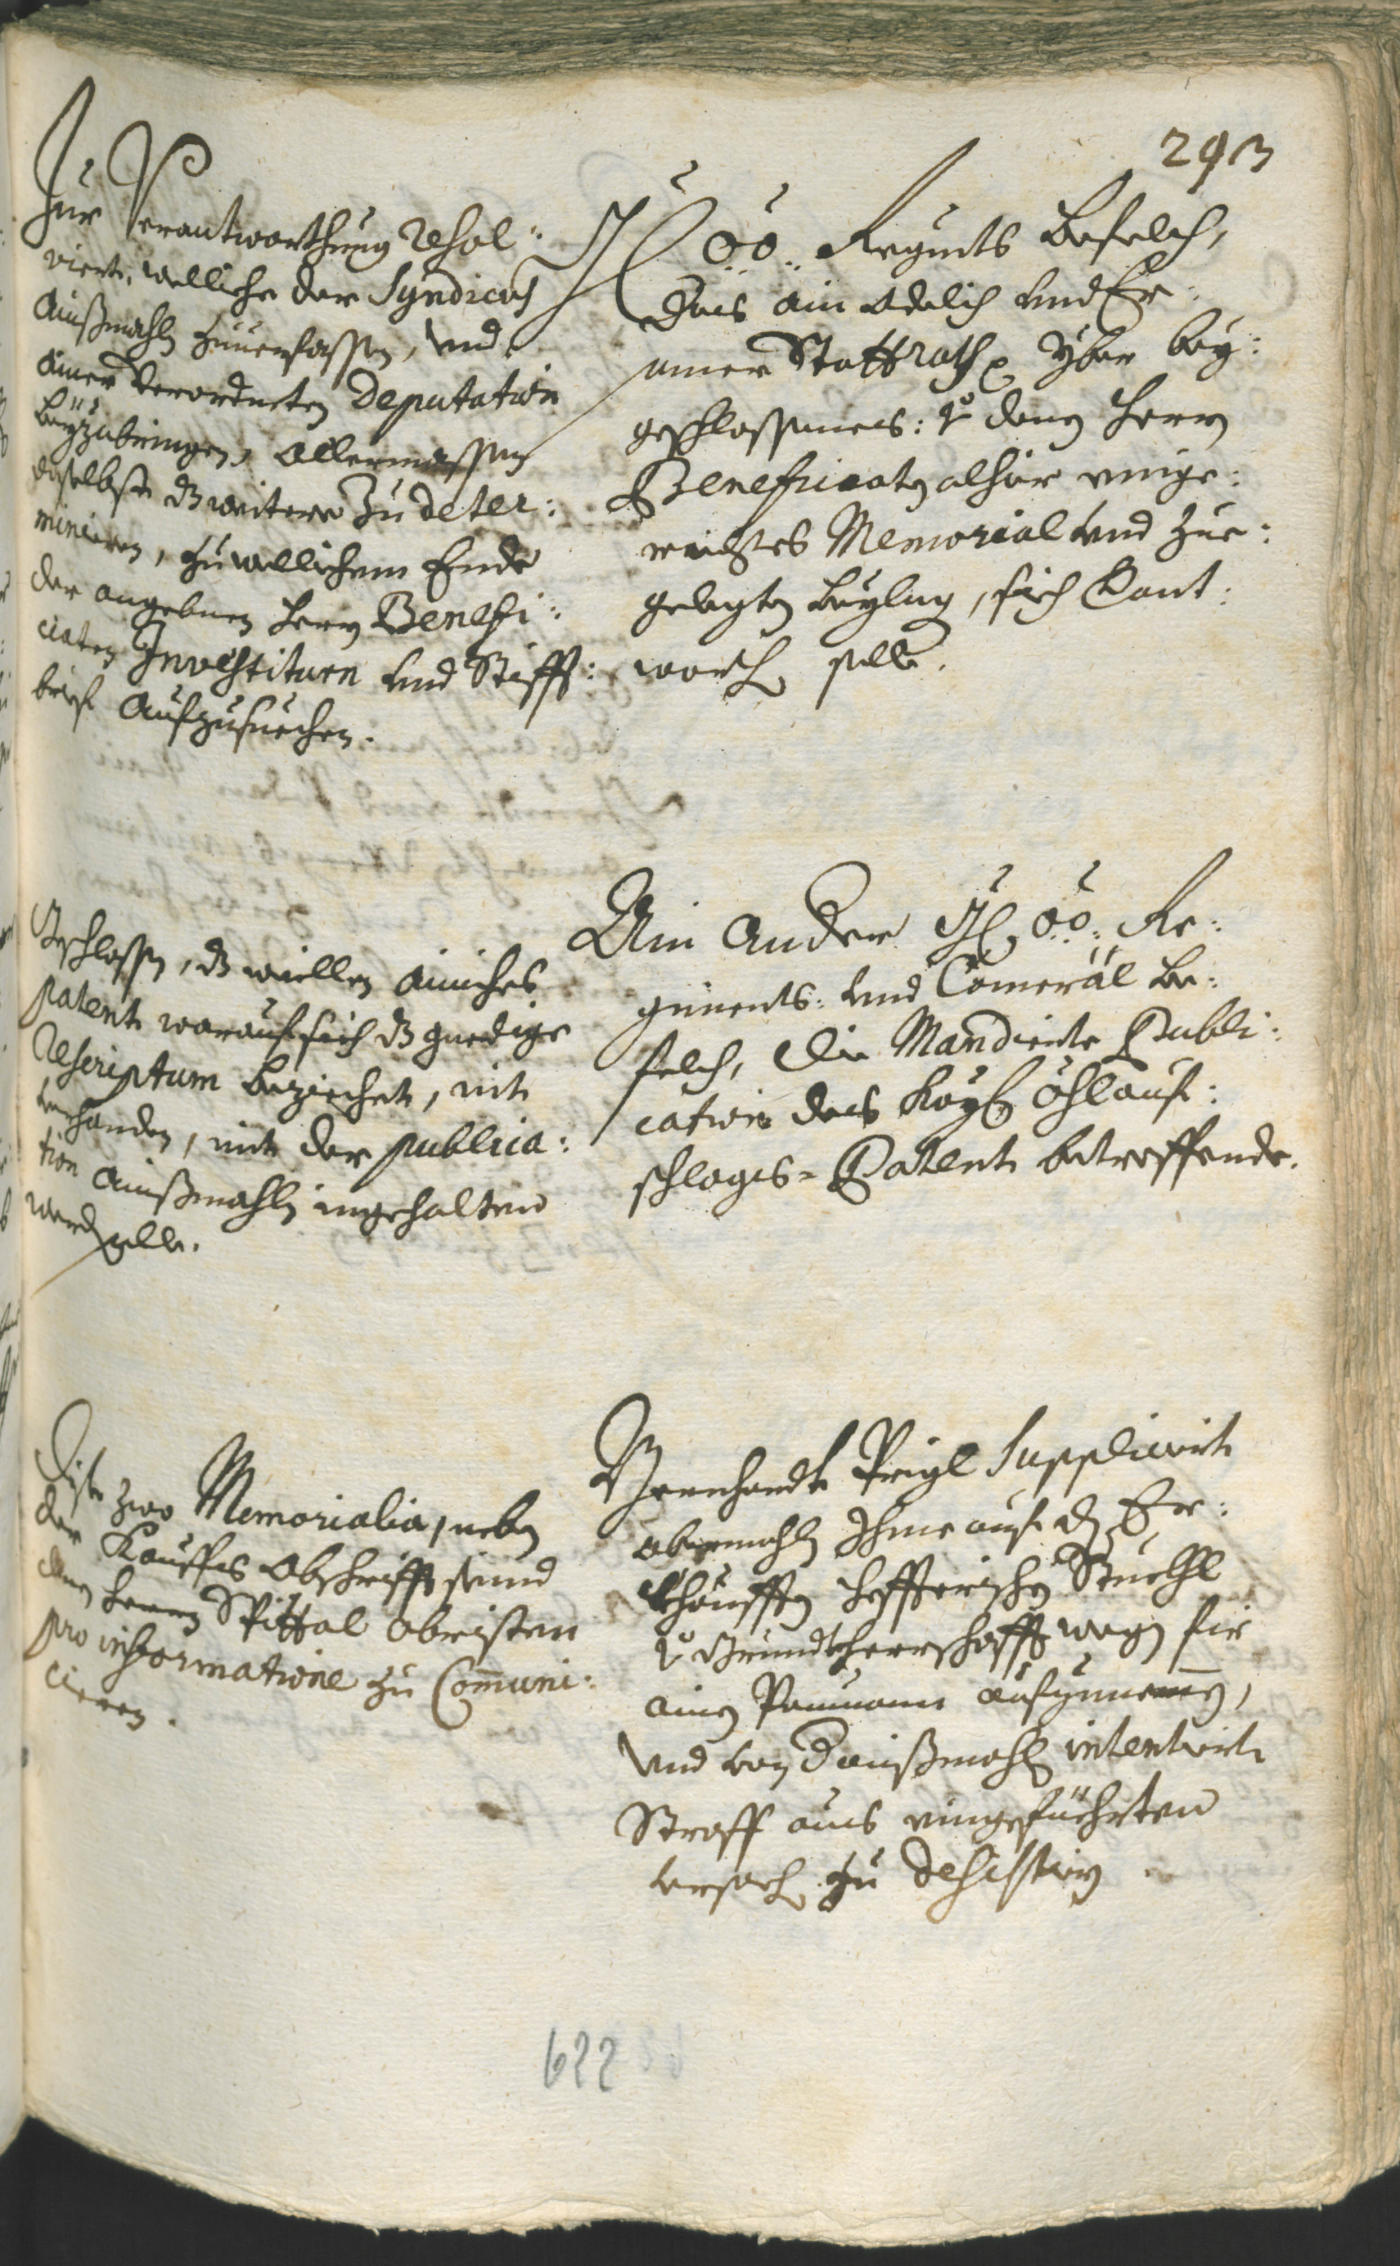 293
Zur Verantworthung resol:
viert, welliche der Syndicus
Ainßmahls zuuerfassen, vnd
ainer Verordneten Deputation
beÿzubringen, allermassen
daselbst dz weitere zu deter:
minieren, zu wellichem Ende
der angebnen Herrn Benefi:
ciaten Investituren vnd Stifft:
brief aufzusuechen.
OÖ. Regimts Befelch,
das ain Adelich vnd Er:
samer Stattrath yber beÿ:
geschlossenes: denen Herrn
Beneficiaten alhier einge:
raichtes Memorial vnd zue:
gelegten beÿlag, sich
solle.
Beschlossen, dz weillen ainiches
patent worauf sich dz gnedige
Rescriptum beziechet, nit
verhanden, mit der publica:
tion ainßmahls ingehalten
werden solle.
Ain Ander OÖ. Re:
giments: vnd Cameral Be:
felch, die Mandierte Publi:
cation des Kaÿs.
schlages-Patent betreffende.
Dise zwo Memorialia, neben
der Kauffes Abschrifft seind
denen Herrn Spittal obristen
pro informatione zu Communi:
cieren.
Bernhardt Prigl Supplicirt
abermahls Ihme auf den Er:
khaufften
Grundtherrschafft wegen für
ainen Paumann aufzunemen,
vnd von dainßmahls intentirte
Straff aus eingefüehrten
vrsachen zu desistiern.
622